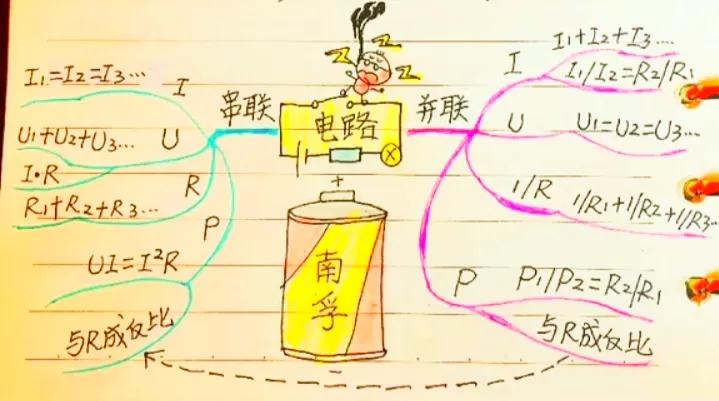 I₁=I₂=I₃…
I
U₁+U₂+U₃…
U
I·R
R
R₁+R₂+R₃…
P
UI=I²R
与R成反比
串联
电路
并联
+
南孚
I
I₁+I₂+I₃…
I₁/I₂=R₂/R₁
U
U₁=U₂=U₃…
1/R
1/R₁+1/R₂+1/R₃…
P
P₁/P₂=R₂/R₁
与R成反比